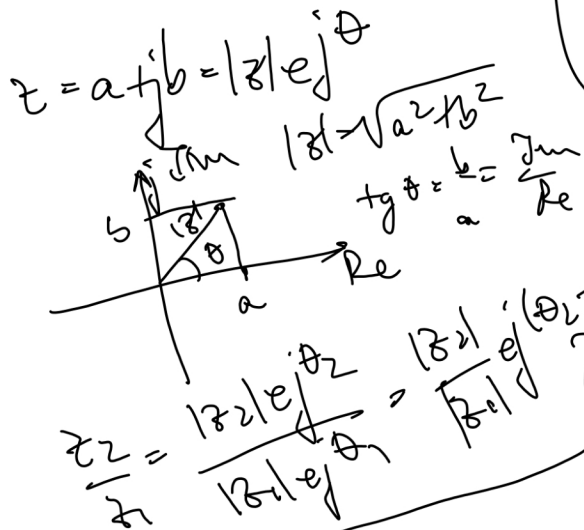 z = a + jb = |z| e^{jθ}
|z| = √(a² + b²)
Im
tg θ = b/a = Im/Re
b |z| θ
a Re
z₂/z₁ = |z₂| e^{jθ₂} / |z₁| e^{jθ₁} = |z₂|/|z₁| e^{j(θ₂